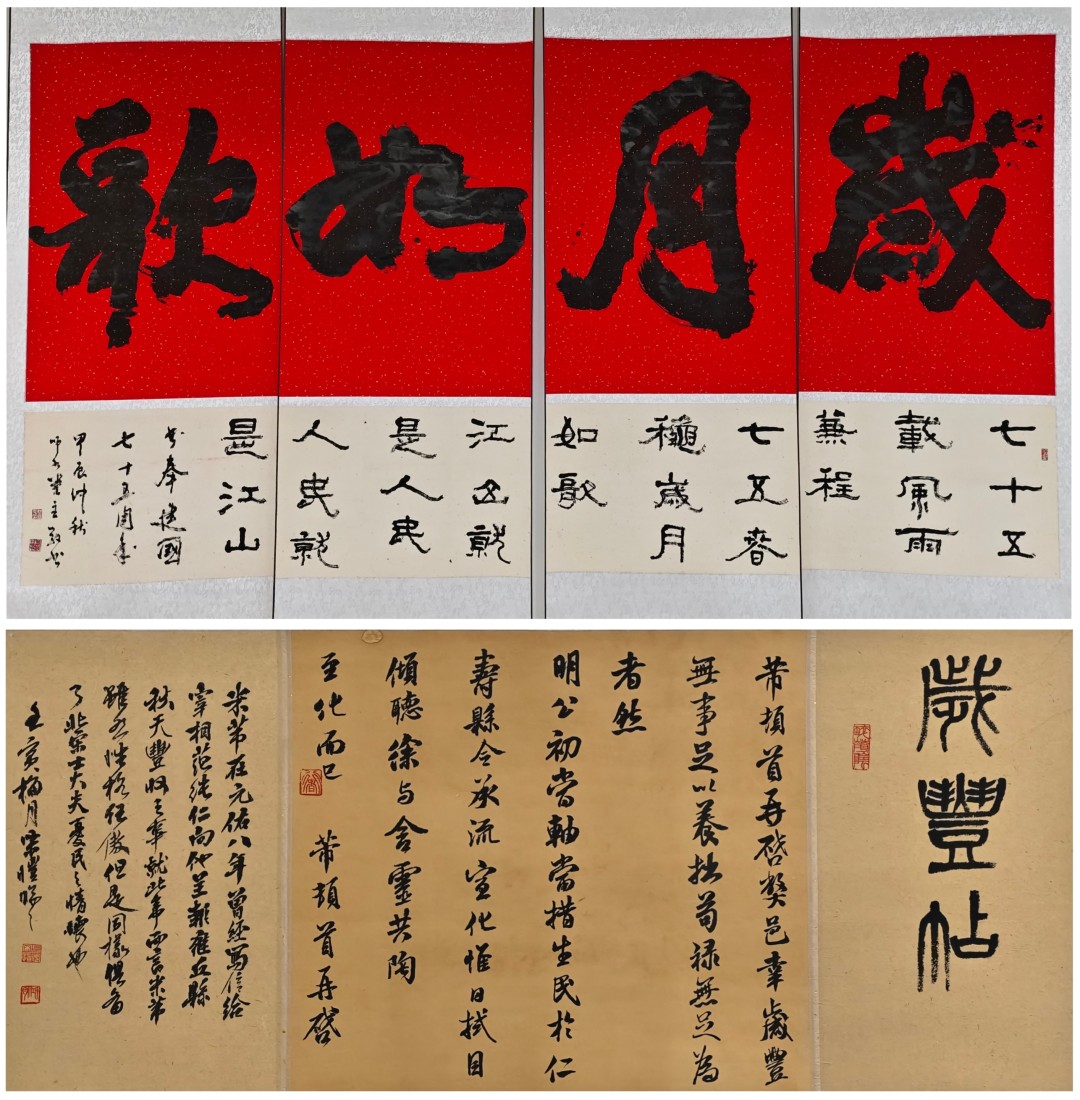 歲月如歌
七十五
載風雨
兼程
七五春
穐歲月
如歌
江山就
是人民
人民就
是江山
书奉建國
七十五周年
甲辰仲秋
敬书
歲豐帖
芾頓首再啓弊邑幸歲豐
無事足以養拙苟禄無足為
者然
明公初當軸當措生民於仁
壽縣令承流宣化惟日拭目
傾聽徐与含靈共陶
至化而已
芾頓首再啓
米芾在元佑八年曾經写信給
宰相范純仁向他呈報雍丘縣
秋天豐收之事就此事而言米芾
雖然性格狂傲但是同樣俱有
了北宋士大夫憂民之情懷也
壬寅梅月